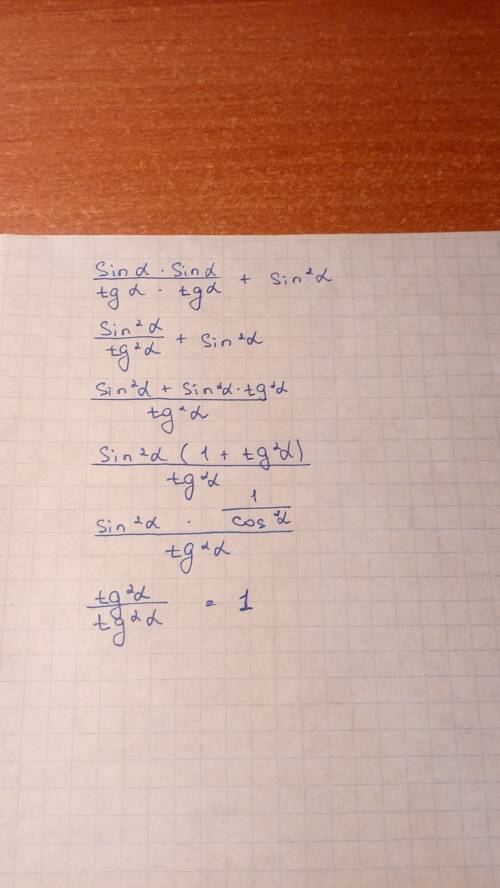 sin α · sin α / tg α · tg α + sin²α
sin²α / tg²α + sin²α
sin²α + sin²α · tg²α / tg²α
sin²α (1 + tg²α) / tg²α
sin²α · 1 / cos²α / tg²α
tg²α / tg²α = 1